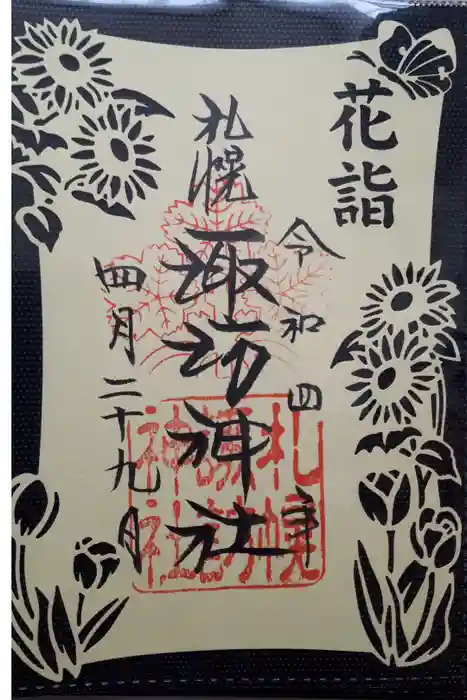 花詣
令和四年
札幌
諏訪神社
四月二十九日
札幌
諏訪
神社